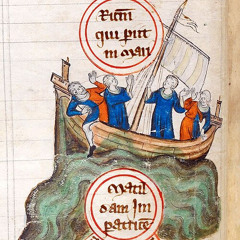 Ricm
qui piit
in mari
Matil
dam Im
patrice